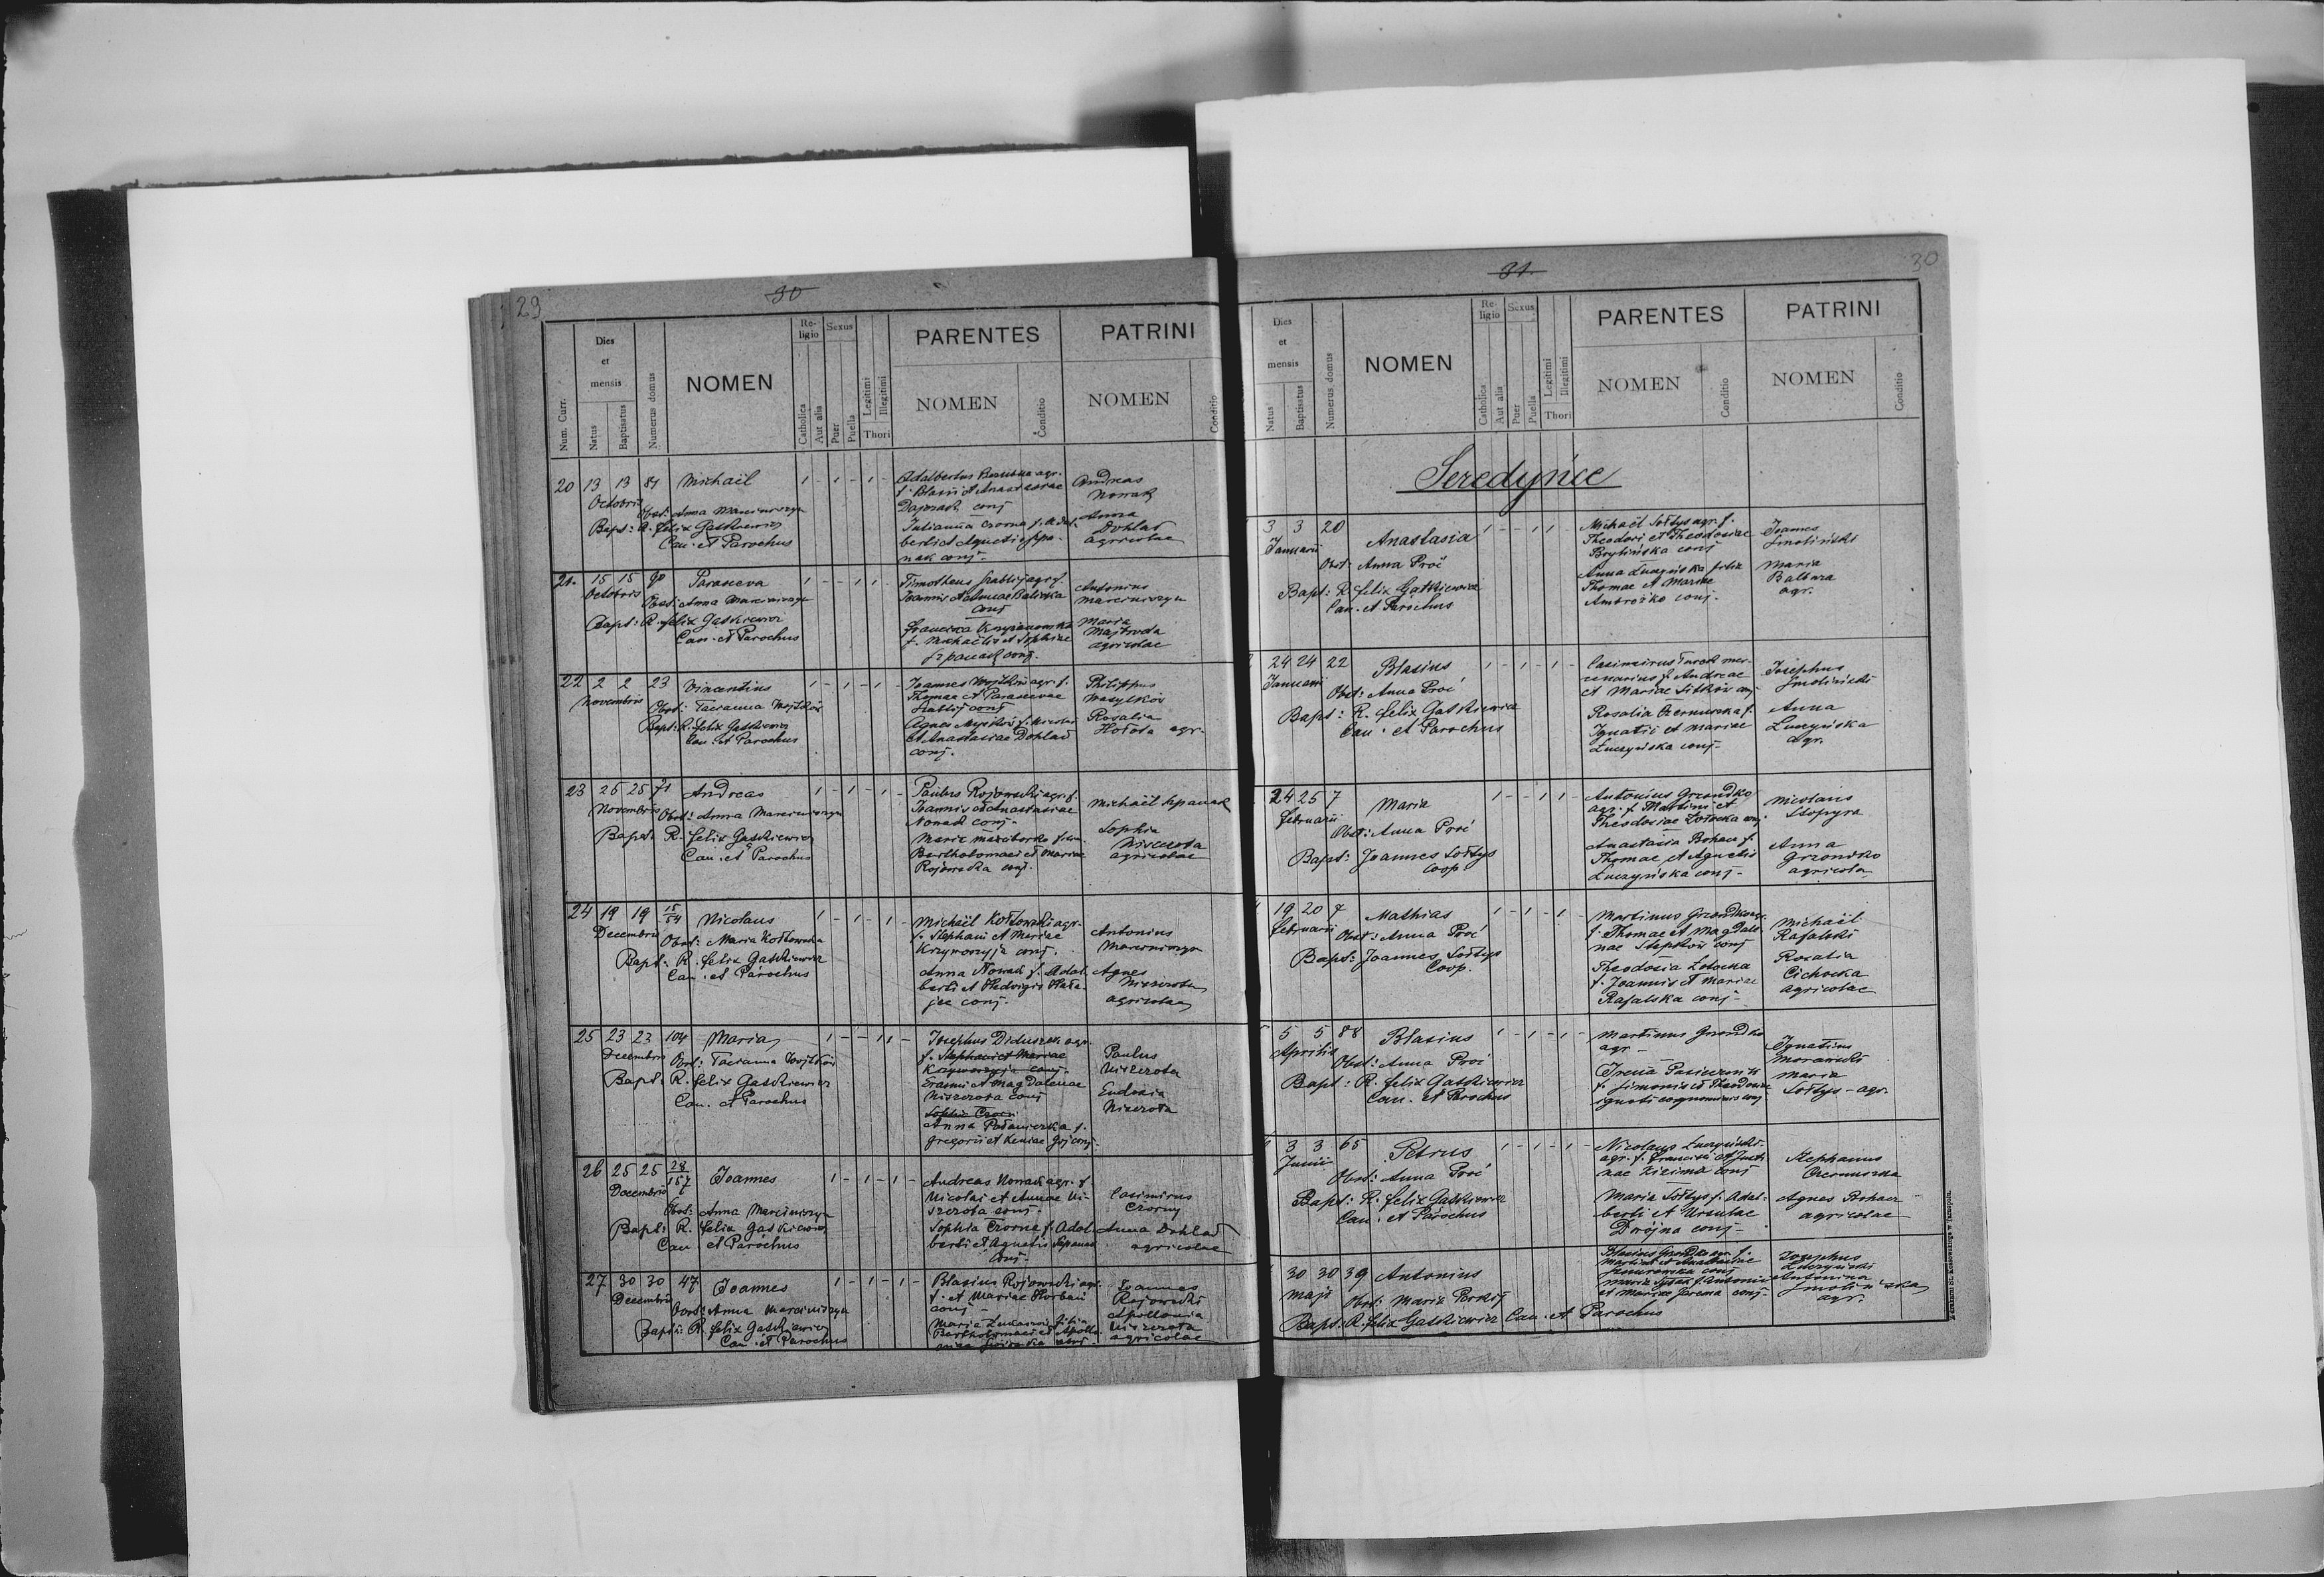 29
30
Num. Curr.
Dies et mensis
Natus
Baptisatus
Numerus domus
NOMEN
Religio
Catholica
Aut alia
Sexus
Puer
Puella
Legitimi
Illegitimi
Thori
PARENTES
NOMEN
Conditio
PATRINI
NOMEN
Conditio
20 13 13 84 Michaël 1 - 1 - 1 -
Octobris
Obst: Anna Marciniszyn
Bapt: R. Felix Gatkiewicz
Can. et Parochus
Adalbertus agr.
f. Blasii et Anastasiae
conj
Julianna Czorna f. Adal-
berti et Agnetis Szpa-
nak conj-
Andreas
Nowak
Anna
Dohlad
agricolae
21. 15 15 90 Parasceva 1 - - 1 1 -
Octobris
Obst: Anna Marciniszyn
Bapt: R. Felix Gatkiewicz
Can. et Parochus
Timotheus agr. f.
Joannis et Annae
conj
Franciska
f. Michaëlis et Sophiae
Szpanak conj.
Antonius
Marciniszyn
Maria
agricolae
22 2 2 23 Vincentius 1 - 1 - 1 -
Novembris
Obst: Tacianna Wojtków
Bapt: R. Felix Gatkiewicz
Can. et Parochus
Joannes Wojtków agr. f.
Thomae et Parascevae
conj
Agnes f. Nicolai
et Anastasiae Dohlad
conj.
Philippus
Wasylków
Rosalia
Hołota agr.
23 25 25 71 Andreas 1 - 1 - 1 -
Novembris
Obst: Anna Marciniszyn
Bapt: R. Felix Gatkiewicz
Can. et Parochus
Paulus Rojowski agr. f.
Joannis et Anastasiae
Nowak conj-
Maria
Bartholomaei et Mariae
Rojowska conj.
Michaël Szpanak
Sophia
Niszczota
agricolae
24 19 19 15/54 Nicolaus 1 - 1 - 1 -
Decembris
Obst: Maria Kozłowska
Bapt: R. Felix Gatkiewicz
Can. et Parochus
Michaël Kozłowski agr.
f. Stephani et Mariae
Krzyworyja conj.
Anna Nowak f. Adal-
berti et Hedvigis
conj-
Antonius
Marciniszyn
Agnes
Niszczota
agricolae
25 23 23 104 Maria 1 - - 1 1 -
Decembris
Obst: Tacianna Wojtków
Bapt: R. Felix Gatkiewicz
Can. et Parochus
Josephus Diduszek agr.
f. Stephani et Mariae
Krzyworyja conj-
Erasmi et Magdalenae
Niszczota conj
Sophia Czorn
Anna f.
Gregorii et Xeniae conj-
Paulus
Niszczota
Eudoxia
Niszczota
26 25 25 28/157 Joannes 1 - 1 - 1 -
Decembris
Obst: Anna Marciniszyn
Bapt: R. Felix Gatkiewicz
Can. et Parochus
Andreas Nowak agr. f.
Nicolai et Annae Ni-
szczota conj-
Sophia Czorna f. Adal-
berti et Agnetis Szpanak
conj-
Casimirus
Czorny
Anna Dohlad
agricolae
27 30 30 47 Joannes 1 - 1 - 1 -
Decembris
Obst: Anna Marciniszyn
Bapt: R. Felix Gatkiewicz
Can. et Parochus
Blasius Rojowski agr.
f. et Mariae Horbań
conj -
Maria filia
Bartholomaei et Apollo-
niae conj.
Joannes
Rojowski
Apollonia
Niszczota
agricolae
31.
30
Dies et mensis
Natus
Baptisatus
Numerus domus
NOMEN
Religio
Catholica
Aut alia
Sexus
Puer
Puella
Legitimi
Illegitimi
Thori
PARENTES
NOMEN
Conditio
PATRINI
NOMEN
Conditio
Seredyńce
3 3 20 Anastasia 1 - - 1 1 -
Januarii
Obst: Anna Proć
Bapt: R. Felix Gatkiewicz
Can. et Parochus
Michaël Sołtys agr. f.
Theodori et Theodosiae
Brylińska conj
Anna Luczyńska filia
Thomae et Mariae
Ambroźko conj-
Joannes
Smoliński
Maria
Balbuza
agr.
24 24 22 Blasius 1 - 1 - 1 -
Januarii
Obst: Anna Proć
Bapt: R. Felix Gatkiewicz
Can. et Parochus
Casimirus Turek mer-
cenarius f. Andreae
et Mariae conj
Rosalia Czermurska f.
Ignatii et Mariae
Luczyńska conj-
Josephus
Smoliński
Anna
Luczyńska
agr.
24 25 7 Maria 1 - - 1 1 -
Februarii
Obst: Anna Proć
Bapt: Joannes Sołtys
Coop.
Antonius Grzondko
agr. f. Martini et
Theodosiae Zołocka conj
Anastasia Bohacz f.
Thomae et Agnetis
Luczyńska conj-
Nicolaus
Stopyra
Anna
Grzondko
agricolae
19 20 7 Mathias 1 - 1 - 1 -
Februarii
Obst: Anna Proć
Bapt: Joannes Sołtys
Coop.
Martinus Grzondko agr.
f. Thomae et Magdale-
nae conj
Theodosia Zołocka
f. Joannis et Mariae
Rafalska conj-
Michaël
Rafalski
Rosalia
Cichocka
agricolae
5 5 88 Blasius 1 - 1 - 1 -
Aprilis
Obst: Anna Proć
Bapt: R. Felix Gatkiewicz
Can. et Parochus
Martinus Grondko
agr -
Irena
f. Simonis et Theodosiae
ignoti cognominis conj
Ignatius
Morawski
Maria
Sołtys - agr.
3 3 65 Petrus 1 - 1 - 1 -
Junii
Obst: Anna Proć
Bapt: R. Felix Gatkiewicz
Can. et Parochus
Nicolaus Luczyński
agr. f. Francisci et Justi-
nae Kizima conj
Maria Sołtys f. Adal-
berti et Ursulae
Dwójna conj-
Stephanus
Czermurska
Agnes Bohacz
agricolae
30 30 39 Antonius
Maji
Obst: Maria
Bapt: R. Felix Gatkiewicz Can. et Parochus
Blasius Grondko agr. f.
Martini et Anastasiae
conj
Maria f. Antonii
et Mariae Jarema conj-
Josephus
Luczyński
Antonina
Smolińska
agr.
Drukarni St. Kossowskiego w Tarnopolu.